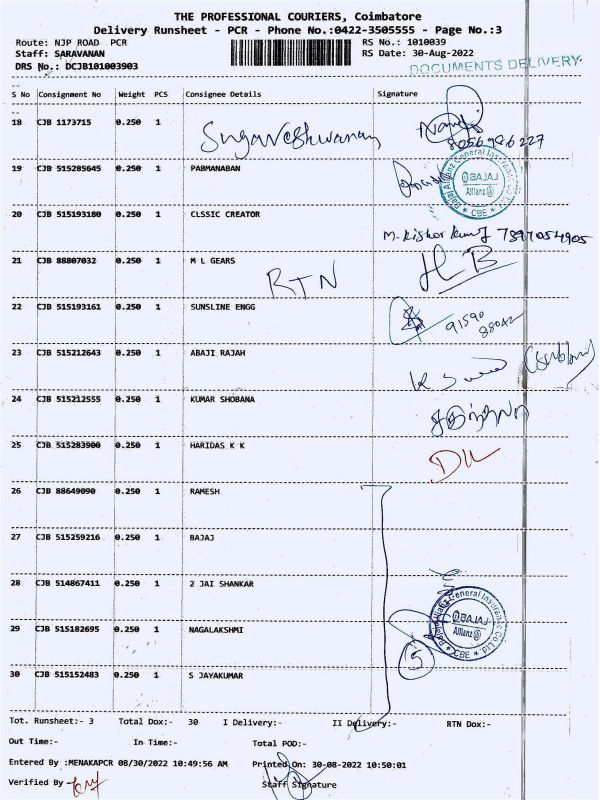 THE PROFESSIONAL COURIERS, Coimbatore
Delivery Runsheet - PCR - Phone No.:0422-3505555 - Page No.:3
Route: NJP ROAD PCR RS No.: 1010039
Staff: SARAVANAN RS Date: 30-Aug-2022
DRS No.: DCJB101003903 DOCUMENTS DELIVERY
S No Consignment No Weight PCS Consignee Details Signature
18 CJB 1173715 0.250 1 Sugareshwaran
8056986227
19 CJB 515285645 0.250 1 PABMANABAN
Bajaj Allianz General Insurance Co Ltd * CBE * BAJAJ Allianz
20 CJB 515193180 0.250 1 CLSSIC CREATOR
M. Kishor Kumar 7397054905
21 CJB 88807032 0.250 1 M L GEARS
RTN HB
22 CJB 515193161 0.250 1 SUNSLINE ENGG
91590
88042
23 CJB 515212643 0.250 1 ABAJI RAJAH
24 CJB 515212555 0.250 1 KUMAR SHOBANA
25 CJB 515283900 0.250 1 HARIDAS K K
DIL
26 CJB 88649090 0.250 1 RAMESH
27 CJB 515259216 0.250 1 BAJAJ
28 CJB 514867411 0.250 1 2 JAI SHANKAR
Bajaj Allianz General Insurance Co Ltd * CBE * BAJAJ Allianz
29 CJB 515182695 0.250 1 NAGALAKSHMI
5
30 CJB 515152483 0.250 1 S JAYAKUMAR
Tot. Runsheet:- 3 Total Dox:- 30 I Delivery:- II Delivery:- RTN Dox:-
Out Time:- In Time:- Total POD:-
Entered By :MENAKAPCR 08/30/2022 10:49:56 AM Printed On: 30-08-2022 10:50:01
Verified By Staff Signature